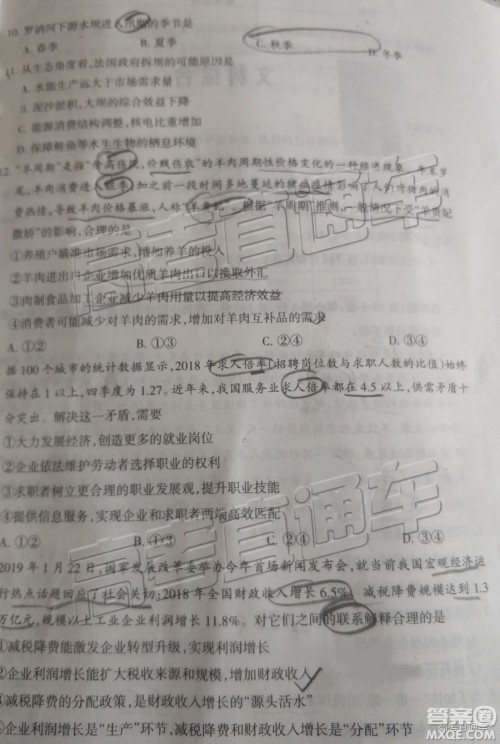 10. 罗纳河下游水坝进入汛期的季节是
A. 春季 B. 夏季 C. 秋季 D. 冬季
11. 从生态角度看,法国政府拆坝的可能原因是
A. 水能生产远大于市场需求量
B. 泥沙淤积,大坝的综合效益下降
C. 能源消费结构调整,核电比重增加
D. 保障鲑鱼等水生生物的栖息环境
12. “羊周期”是指“价高伤民,价贱伤农”的羊肉周期性价格变化的一种经济现象。
尾,羊肉消费进入旺季,加之前一段时间多地蔓延的猪瘟疫情影响了人们对猪肉的消
费热情,导致羊肉价格暴涨,人称“羊贵妃”。根据“羊周期”推测,一般情况下受“羊贵妃
撒娇”的影响,合理的是
①养殖户瞄准市场需求,增加养羊的投入
②羊肉进出口企业增加优质羊肉出口以换取外汇
③肉制食品加工企业减少羊肉用量以提高经济效益
④消费者可能减少对羊肉的需求,增加对羊肉互补品的需求
A. ①② B. ①③ C. ②④ D. ③④
据 100 个城市的统计数据显示,2018 年求人倍率(招聘岗位数与求职人数的比值)始终
保持在 1 以上,四季度为 1.27。近年来,我国服务业求人倍率都在 4.5 以上,供需矛盾十
分突出。解决这一矛盾,需要
①大力发展经济,创造更多的就业岗位
②企业依法维护劳动者选择职业的权利
③求职者树立更合理的职业发展观,提升职业技能
④提供信息服务,实现企业和求职者两端高效匹配
A. ①② B. ①③ C. ②④ D. ③④
2019 年 1 月 22 日,国家发展改革委举办今年首场新闻发布会,就当前我国宏观经济运
行热点话题回应了社会关切:2018 年全国财政收入增长 6.5%,减税降费规模达到 1.3
万亿元,规模以上工业企业利润增长 11.8%。对它们之间的联系解释合理的是
①减税降费能激发企业转型升级,实现利润增长
②企业利润增长能扩大税收来源和规模,增加财政收入
③减税降费的分配政策,是财政收入增长的“源头活水”
④企业利润增长是“生产”环节,减税降费和财政收入增长是“分配”环节
高考直通车
高考直通车
答案圈
MXQE.COM